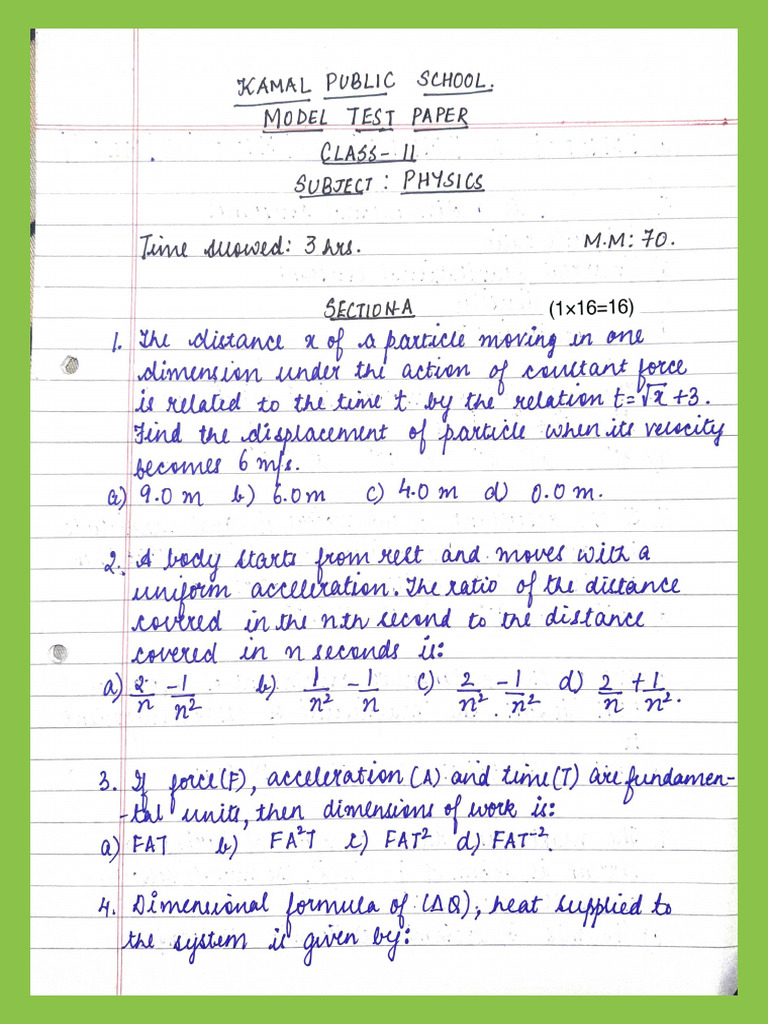 KAMAL PUBLIC SCHOOL.
MODEL TEST PAPER
CLASS-11
SUBJECT: PHYSICS
Time allowed: 3 hrs. M.M: 70.
SECTION-A (1×16=16)
1. The distance x of a particle moving in one
dimension under the action of constant force
is related to the time t by the relation t=√x+3.
Find the displacement of particle when its velocity
becomes 6 m/s.
a) 9.0 m b) 6.0m c) 4.0 m d) 0.0 m.
2. A body starts from rest and moves with a
uniform acceleration. The ratio of the distance
covered in the nth second to the distance
covered in n seconds is:
a) 2/n - 1/n² b) 1/n² - 1/n c) 2/n² - 1/n² d) 2/n + 1/n².
3. If force(F), acceleration (A) and time(T) are fundamen-
-tal units, then dimensions of work is:
a) FAT b) FA²T c) FAT² d) FAT⁻².
4. Dimensional formula of (ΔQ), heat supplied to
the system is given by: